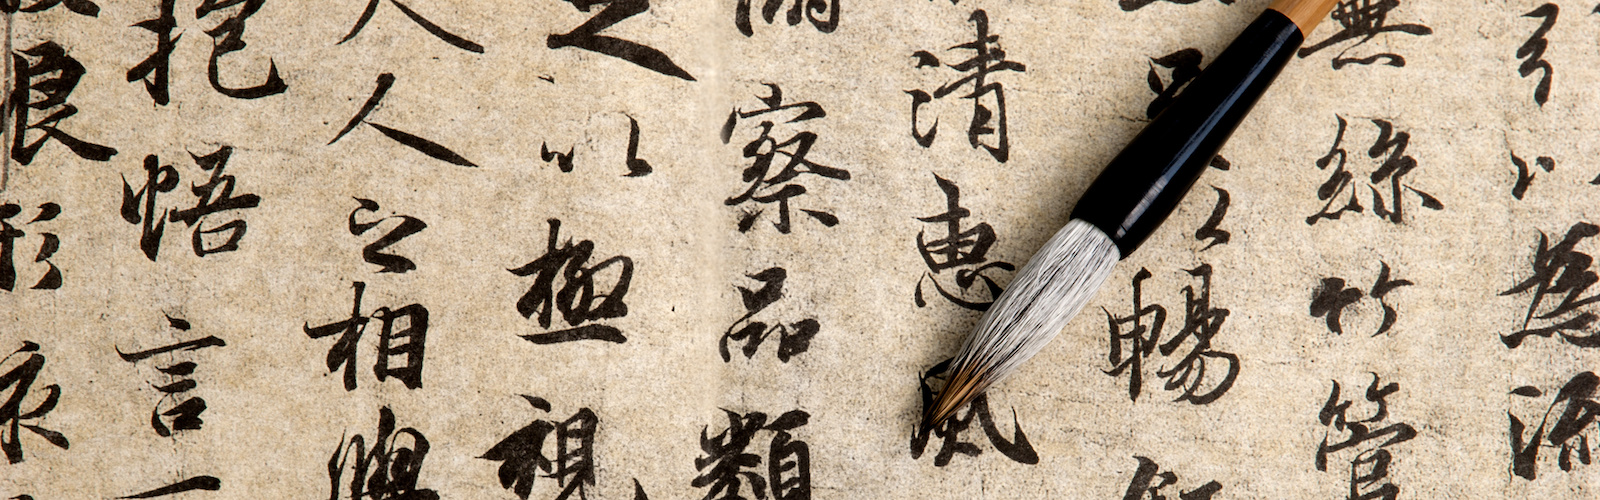 引以為流
無絲竹管
以暢叙
清惠風
察品類
以極視
人之相與
抱悟言一
浪形